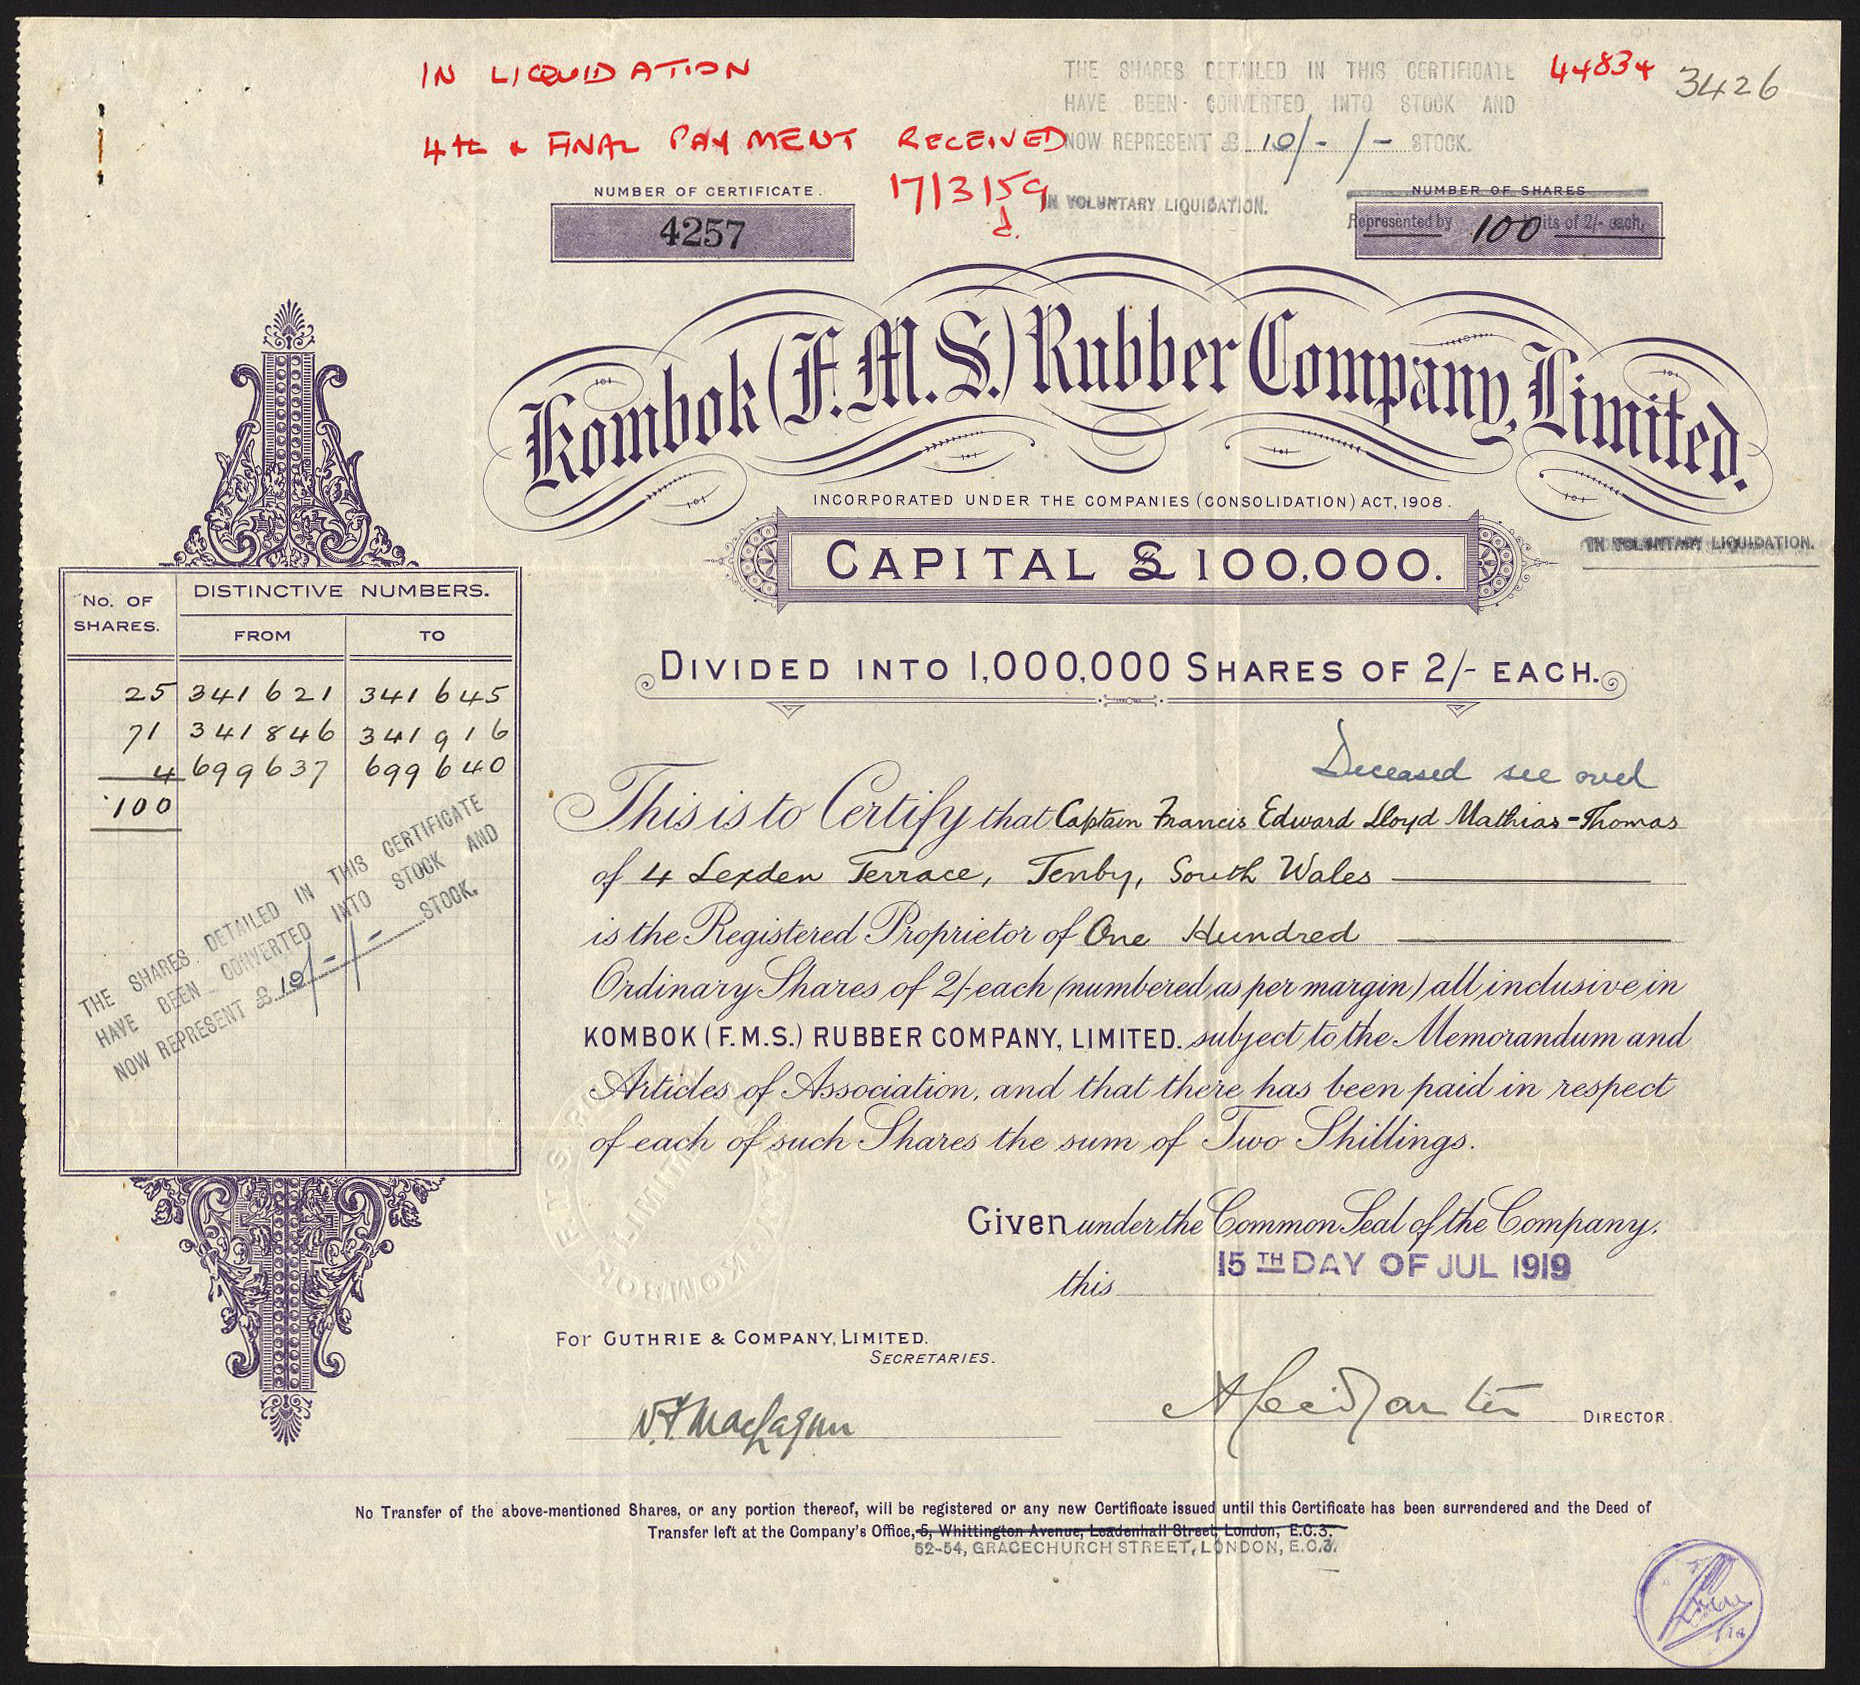 IN LIQUIDATION
4th & FINAL PAYMENT RECEIVED
17/3/59
d.
THE SHARES DETAILED IN THIS CERTIFICATE
HAVE BEEN CONVERTED INTO STOCK AND
NOW REPRESENT £ 10/-/- STOCK.
44834
3426
IN VOLUNTARY LIQUIDATION.
NUMBER OF CERTIFICATE.
4257
NUMBER OF SHARES
Represented by 100 Units of 2/- each,
Kombok (F.M.S.) Rubber Company, Limited.
INCORPORATED UNDER THE COMPANIES (CONSOLIDATION) ACT, 1908.
CAPITAL £100,000.
IN VOLUNTARY LIQUIDATION.
DIVIDED INTO 1,000,000 SHARES OF 2/- EACH.
No. OF SHARES.
DISTINCTIVE NUMBERS.
FROM TO
25 341621 341645
71 341846 341916
4 699637 699640
100
THE SHARES DETAILED IN THIS CERTIFICATE
HAVE BEEN CONVERTED INTO STOCK AND
NOW REPRESENT £ 10/-/- STOCK.
Deceased see over
This is to Certify that Captain Francis Edward Lloyd Mathias-Thomas
of 4 Lexden Terrace, Tenby, South Wales
is the Registered Proprietor of One Hundred
Ordinary Shares of 2/- each (numbered as per margin) all inclusive in
KOMBOK (F.M.S.) RUBBER COMPANY, LIMITED. subject to the Memorandum and
Articles of Association, and that there has been paid in respect
of each of such Shares the sum of Two Shillings.
Given under the Common Seal of the Company,
this 15TH DAY OF JUL 1919
For GUTHRIE & COMPANY, LIMITED.
SECRETARIES.
DIRECTOR
No Transfer of the above-mentioned Shares, or any portion thereof, will be registered or any new Certificate issued until this Certificate has been surrendered and the Deed of
Transfer left at the Company's Office, 5, Whittington Avenue, Leadenhall Street, London, E.C.3.
52-54, GRACECHURCH STREET, LONDON, E.C.3.